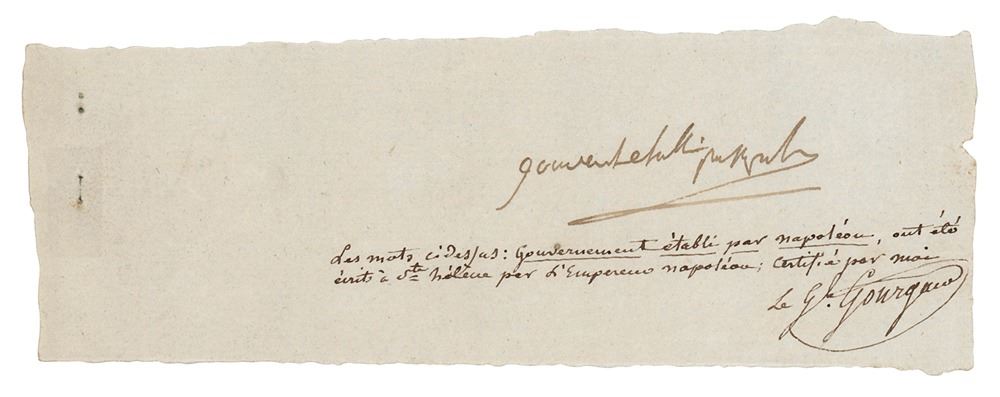 gouvent etabli par Napole
Les mots cidessus: Gouvernement établi par napoléon, ont été
écrits à Ste hélène par L'Empereur napoléon; Certifié par moi
Le Gal Gourgaud